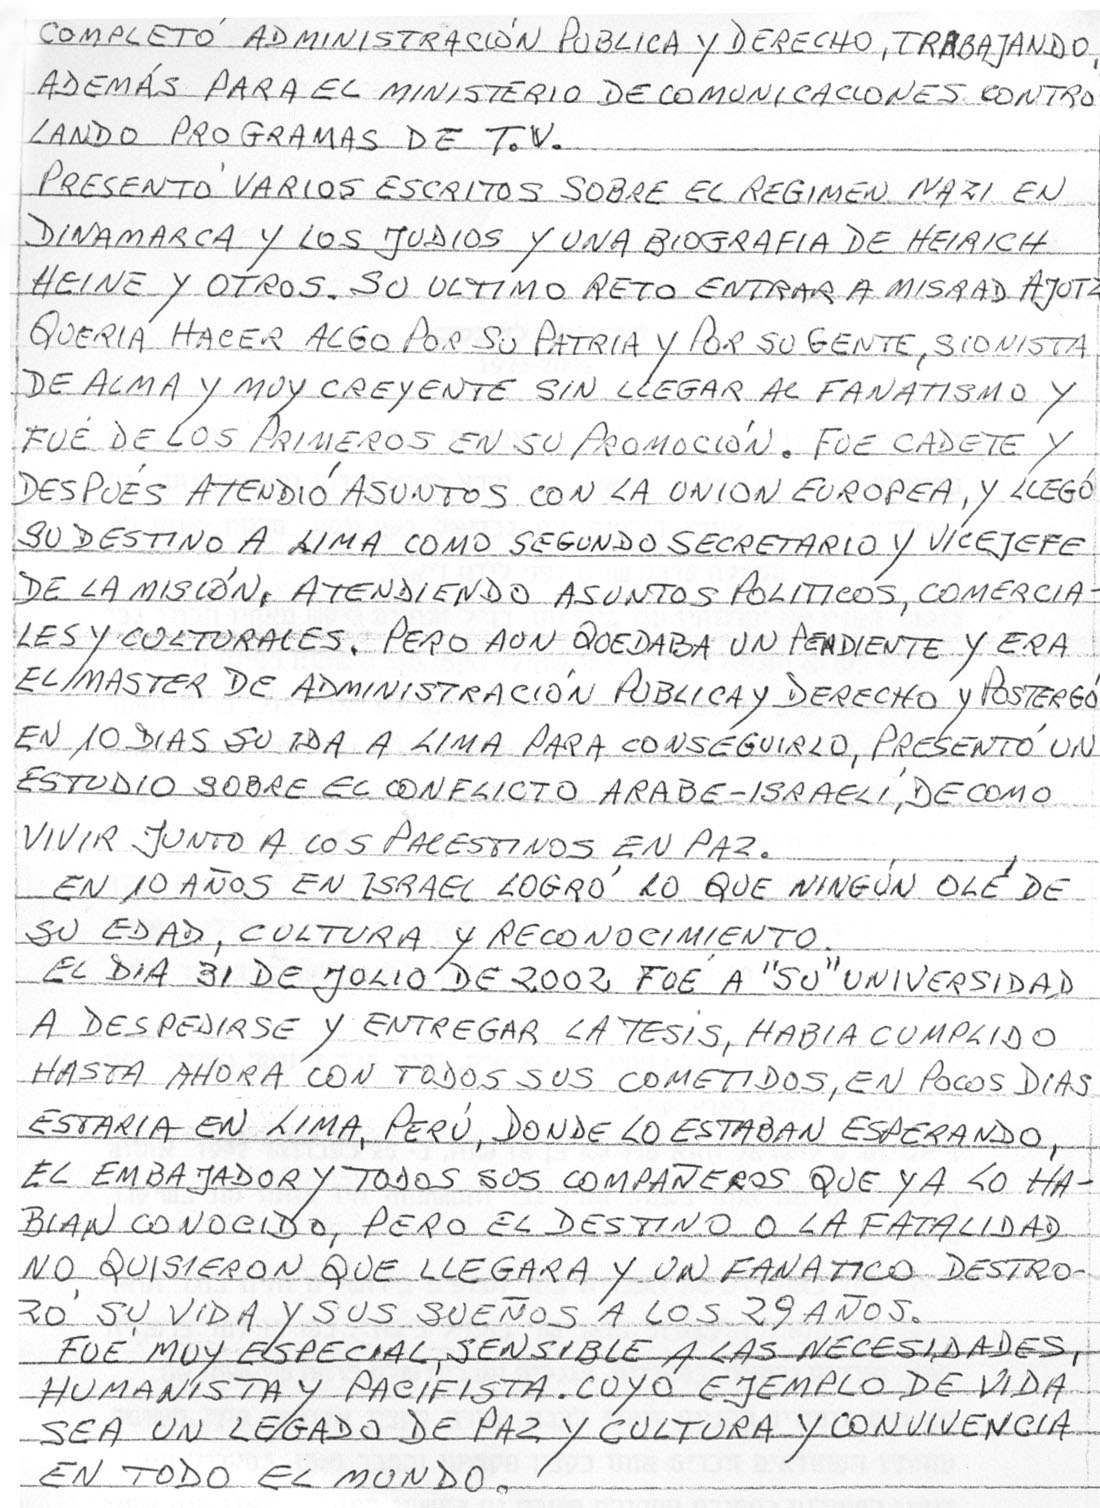 COMPLETÓ ADMINISTRACIÓN PUBLICA Y DERECHO, TRABAJANDO,
ADEMÁS PARA EL MINISTERIO DE COMUNICACIONES CONTRO
LANDO PROGRAMAS DE T.V.
PRESENTÓ VARIOS ESCRITOS SOBRE EL REGIMEN NAZI EN
DINAMARCA Y LOS JUDIOS Y UNA BIOGRAFIA DE HEIRICH
HEINE Y OTROS. SU ULTIMO RETO ENTRAR A MISRAD AJUTZ
QUERIA HACER ALGO POR SU PATRIA Y POR SU GENTE, SIONISTA
DE ALMA Y MUY CREYENTE SIN LLEGAR AL FANATISMO Y
FUÉ DE LOS PRIMEROS EN SU PROMOCIÓN. FUE CADETE Y
DESPUÉS ATENDIÓ ASUNTOS CON LA UNION EUROPEA, Y LLEGÓ
SU DESTINO A LIMA COMO SEGUNDO SECRETARIO Y VICEJEFE
DE LA MISIÓN, ATENDIENDO ASUNTOS POLITICOS, COMERCIA-
LES Y CULTURALES. PERO AUN QUEDABA UN PENDIENTE Y ERA
EL MASTER DE ADMINISTRACIÓN PUBLICA Y DERECHO Y POSTERGÓ
EN 10 DIAS SU IDA A LIMA PARA CONSEGUIRLO, PRESENTÓ UN
ESTUDIO SOBRE EL CONFLICTO ARABE-ISRAELÍ, DE COMO
VIVIR JUNTO A LOS PALESTINOS EN PAZ.
EN 10 AÑOS EN ISRAEL LOGRÓ LO QUE NINGÚN OLÉ DE
SU EDAD, CULTURA Y RECONOCIMIENTO.
EL DIA 31 DE JULIO DE 2002 FUÉ A "SU" UNIVERSIDAD
A DESPEDIRSE Y ENTREGAR LA TESIS, HABIA CUMPLIDO
HASTA AHORA CON TODOS SUS COMETIDOS, EN POCOS DIAS
ESTARIA EN LIMA, PERÚ, DONDE LO ESTABAN ESPERANDO,
EL EMBAJADOR Y TODOS SUS COMPAÑEROS QUE YA LO HA-
BIAN CONOCIDO, PERO EL DESTINO O LA FATALIDAD
NO QUISIERON QUE LLEGARA Y UN FANATICO DESTRO-
ZÓ SU VIDA Y SUS SUEÑOS A LOS 29 AÑOS.
FUÉ MUY ESPECIAL, SENSIBLE A LAS NECESIDADES,
HUMANISTA Y PACIFISTA. CUYO EJEMPLO DE VIDA
SEA UN LEGADO DE PAZ Y CULTURA Y CONVIVENCIA
EN TODO EL MUNDO.